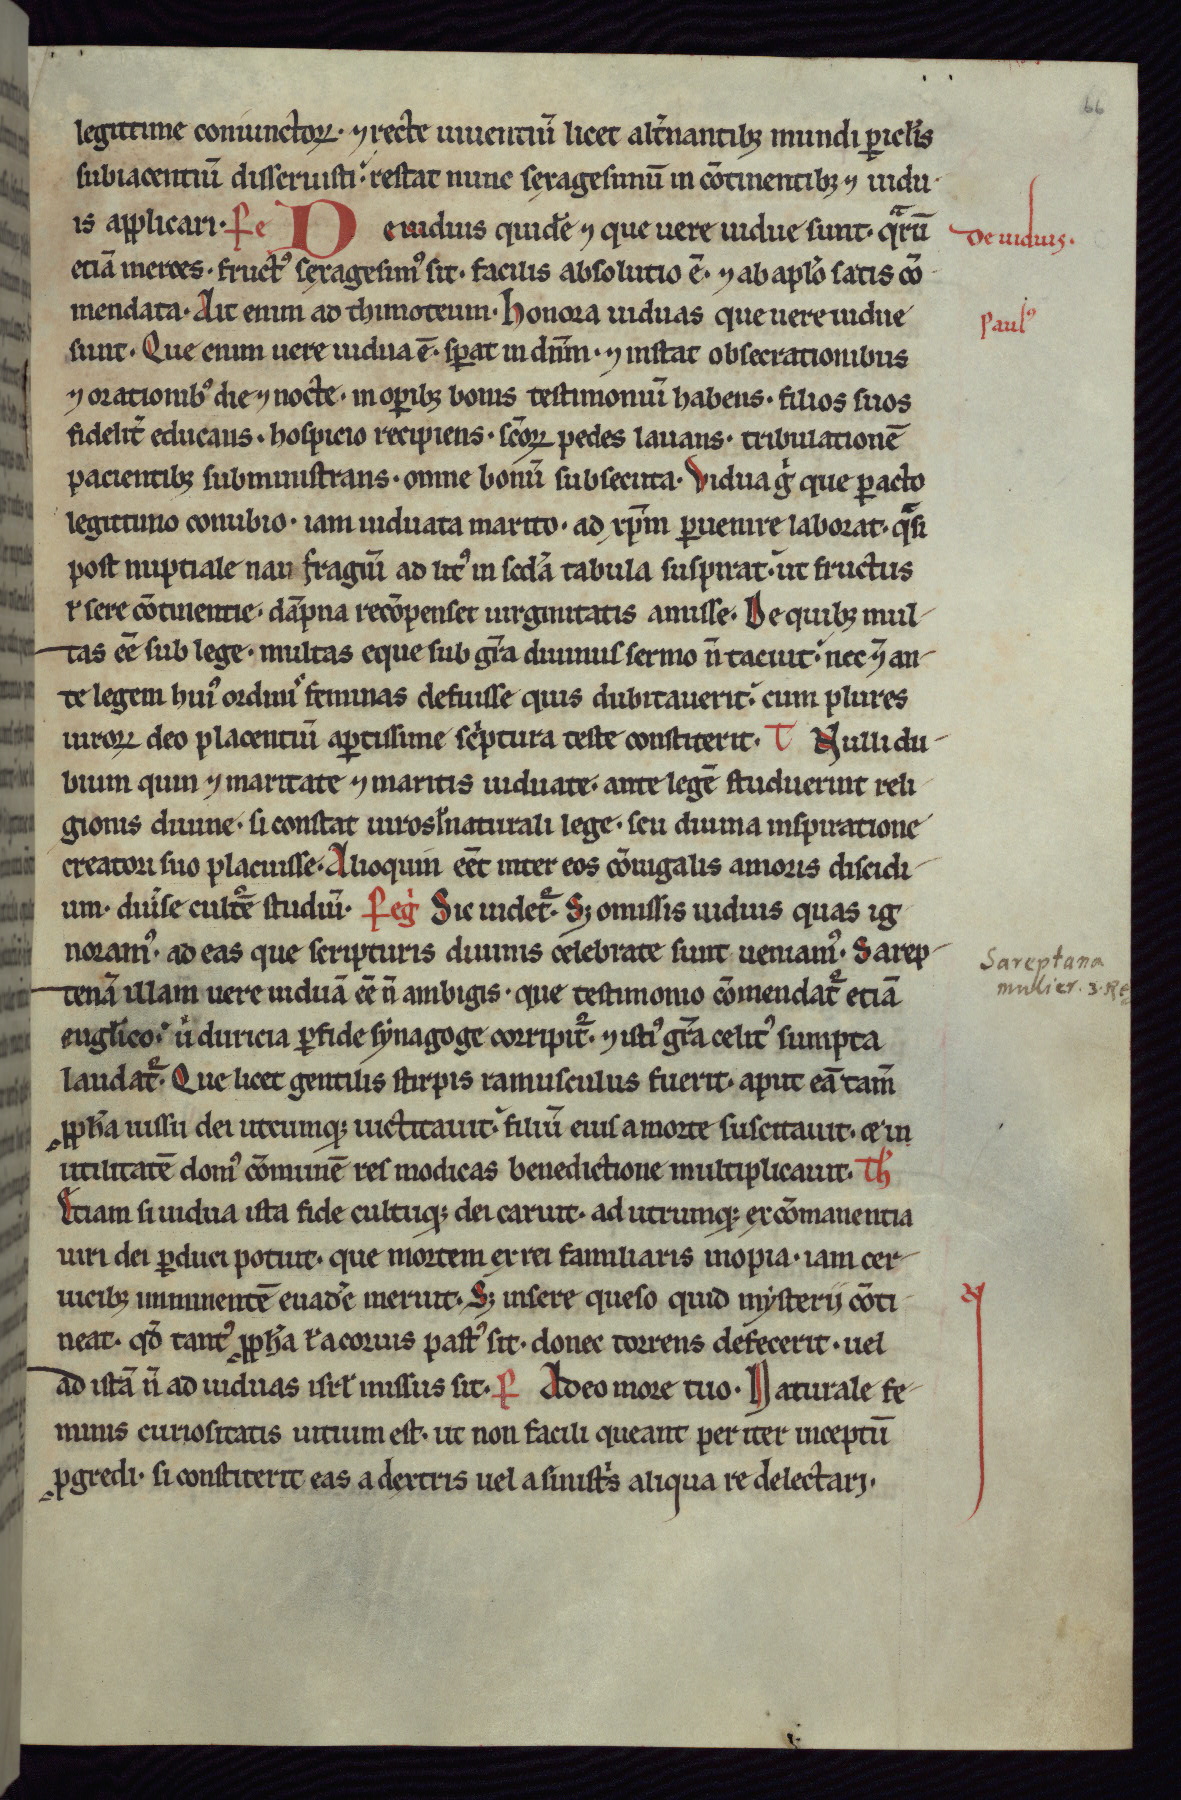 66
legittime coniunctoꝝ· ⁊ recte uiuentiū licet alt̉nantibꝫ mundi ꝑicl̉is
subiacentiū disseruisti· restat nunc sexagesimū in cōtinentibꝫ ⁊ uidu
is applicari· Pe De uiduis quidē ⁊ que uere uidue sunt· qͣrū
De uiduis.
etiā merces· fructꝰ sexagesimꝰ sit· facilis absolutio ē· ⁊ ab aplo̅ satis cō
mendata· Ait enim ad thimoteum· Honora uiduas que uere uidue
Paulꝰ
sunt· Que enim uere uidua ē· sꝑat in dn̅m· ⁊ instat obsecrationibus
⁊ orationibꝰ die ⁊ nocte· in oꝑibꝫ bonis testimoniū habens· filios suos
fidelit̉ educans· hospicio recipiens· sc̅oꝝ pedes lauans· tribulationē
pacientibꝫ subministrans· omne bonū subsecuta· Vidua g̉ que ꝑacto
legittimo conubio· iam uiduata marito· ad xp̅m ꝑuenire laborat· qͣsi
post nuptiale nau fragiū ad litꝰ in scd̅a tabula suspirat· ut fructus
ꝛ sere cōtinentie· dāpna recōpenset uirginitatis amisse· De quibꝫ mul
tas eē sub lege· multas eque sub gr̅a diuinus sermo n̄ tacuit· nec ⁊ an
te legem huiꝰ ordinis feminas defuisse quis dubitauerit· cum plures
uiroꝝ deo placentiū aꝑtissime sc̉ptura teste constiterit· T Nulli du
bium quin ⁊ maritate ⁊ maritis uiduate· ante legē studuerint reli
gionis diuine· si constat uiros naturali lege· seu diuina inspiratione
creatori suo placuisse· Alioquin eēt inter eos cōiugalis amoris discidi
um· diuīse cult᷑e studiū· Peg̉ Sic uidet᷑· Sꝫ omissis uiduis quas ig
noramꝰ· ad eas que scripturis diuinis celebrate sunt ueniamꝰ· Sarep
Sareptana
mulier. 3. Re
tenā illam uere uiduā eē n̄ ambigis· que testimonio cōmendat᷑ etiā
eugl̅ico· u̇ duricia ꝑfide synagoge corripit᷑· ⁊ istiꝰ gr̅a celitꝰ sumpta
laudat᷑· Que licet gentilis stirpis ramusculus fuerit· aput eā tam̄
ꝓph̅a iussu dei utcumqꝫ uictitauit· filiū eius a morte suscitauit· et in
utilitatē domꝰ cōmunē res modicas benedictione multiplicauit· Th̅
Etiam si uidua ista fide cultuqꝫ dei caruit· ad utrumqꝫ ex cōmanentia
uiri dei ꝑduci potuit· que mortem ex rei familiaris inopia· iam cer
uicibꝫ imminentē euad̉e meruit· Sꝫ insere queso quid mysterij cōti
neat· qd̄ tantꝰ ꝓph̅a ł a coruis pastꝰ sit· donec torrens defecerit· uel
ad istā n̄ ad uiduas isrł missus sit· P Adeo more tuo· Naturale fe
minis curiositatis uitium est· ut non facili queant per iter inceptū
ꝓgredi· si constiterit eas a dextris uel a sinist̉s aliqua re delectari·